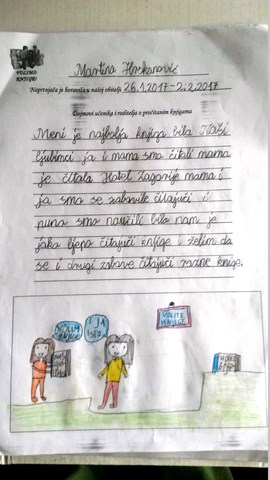 VOLIMO
KNJIGE!
Martina Hrkanović
Naprtnjača je boravila u našoj obitelji 26.1.2017-2.2.2017
Dojmovi učenika i roditelja o pročitanim knjigama
Meni je najbolja knjiga bila Naši
ljubimci ja i mama smo čitali mama
je čitala Hotel Zagorje mama i
ja smo se zabavile čitajući i
puno smo naučili bilo nam je
jako lijepo čitajući knjige i želim da
se i drugi zabave čitajući razne knjige.
VOLIM
KNJIGE
I JA
ISTO
VOLITE
KNJIGE
NAŠI
HOTEL